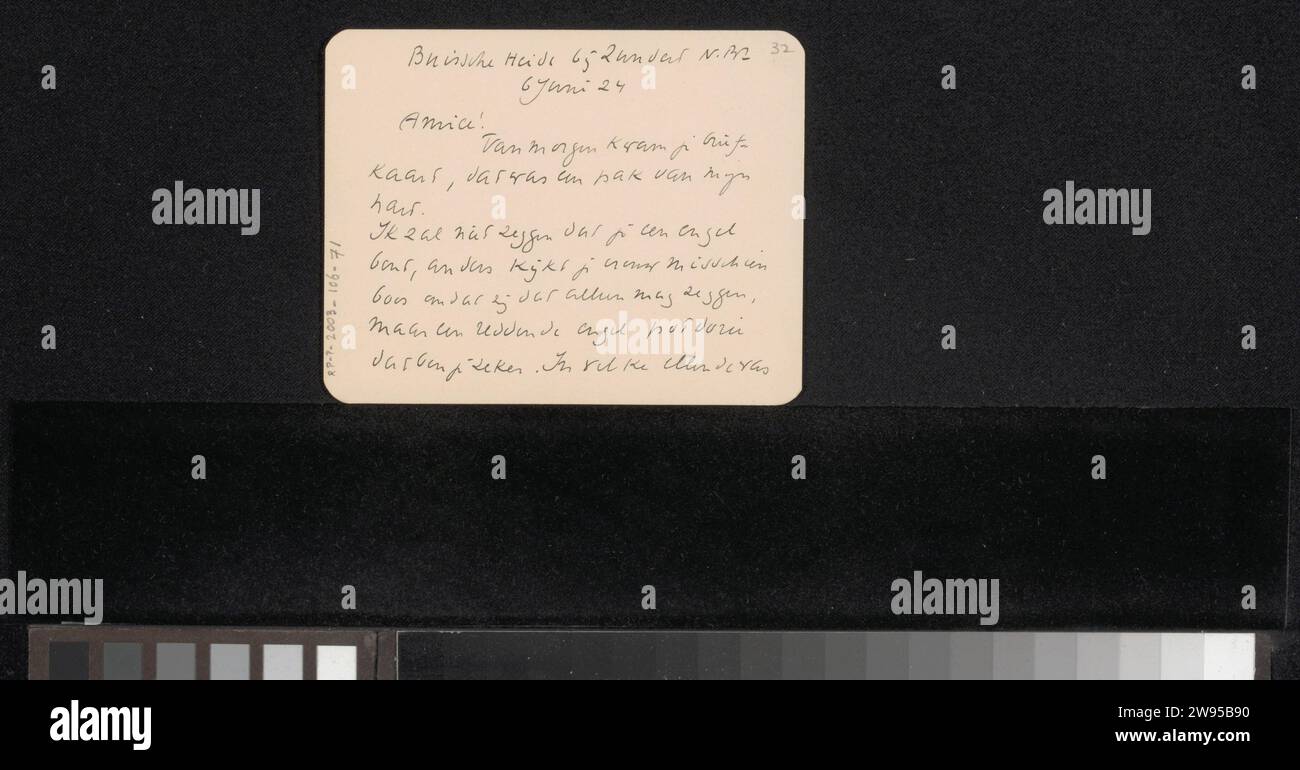 Buissche Heide bij Zundert N.Br
32
6 Juni 24
Amice!
Vanmorgen kwam je brief-
kaart, dat was een pak van mijn
hart.
Ik zal niet zeggen dat je een engel
bent, anders kijkt je vrouw misschien
boos omdat zij dat alleen mag zeggen,
maar een reddende engel potdorie
dat ben je zeker. In welke ellende was
RP-P-2003-106-71
alamy
alamy
alamy
alamy
alamy
a
a
a
a
a
a
a
a
a
a
a
a
a
a
alamy
Image ID: 2W95B90
www.alamy.com